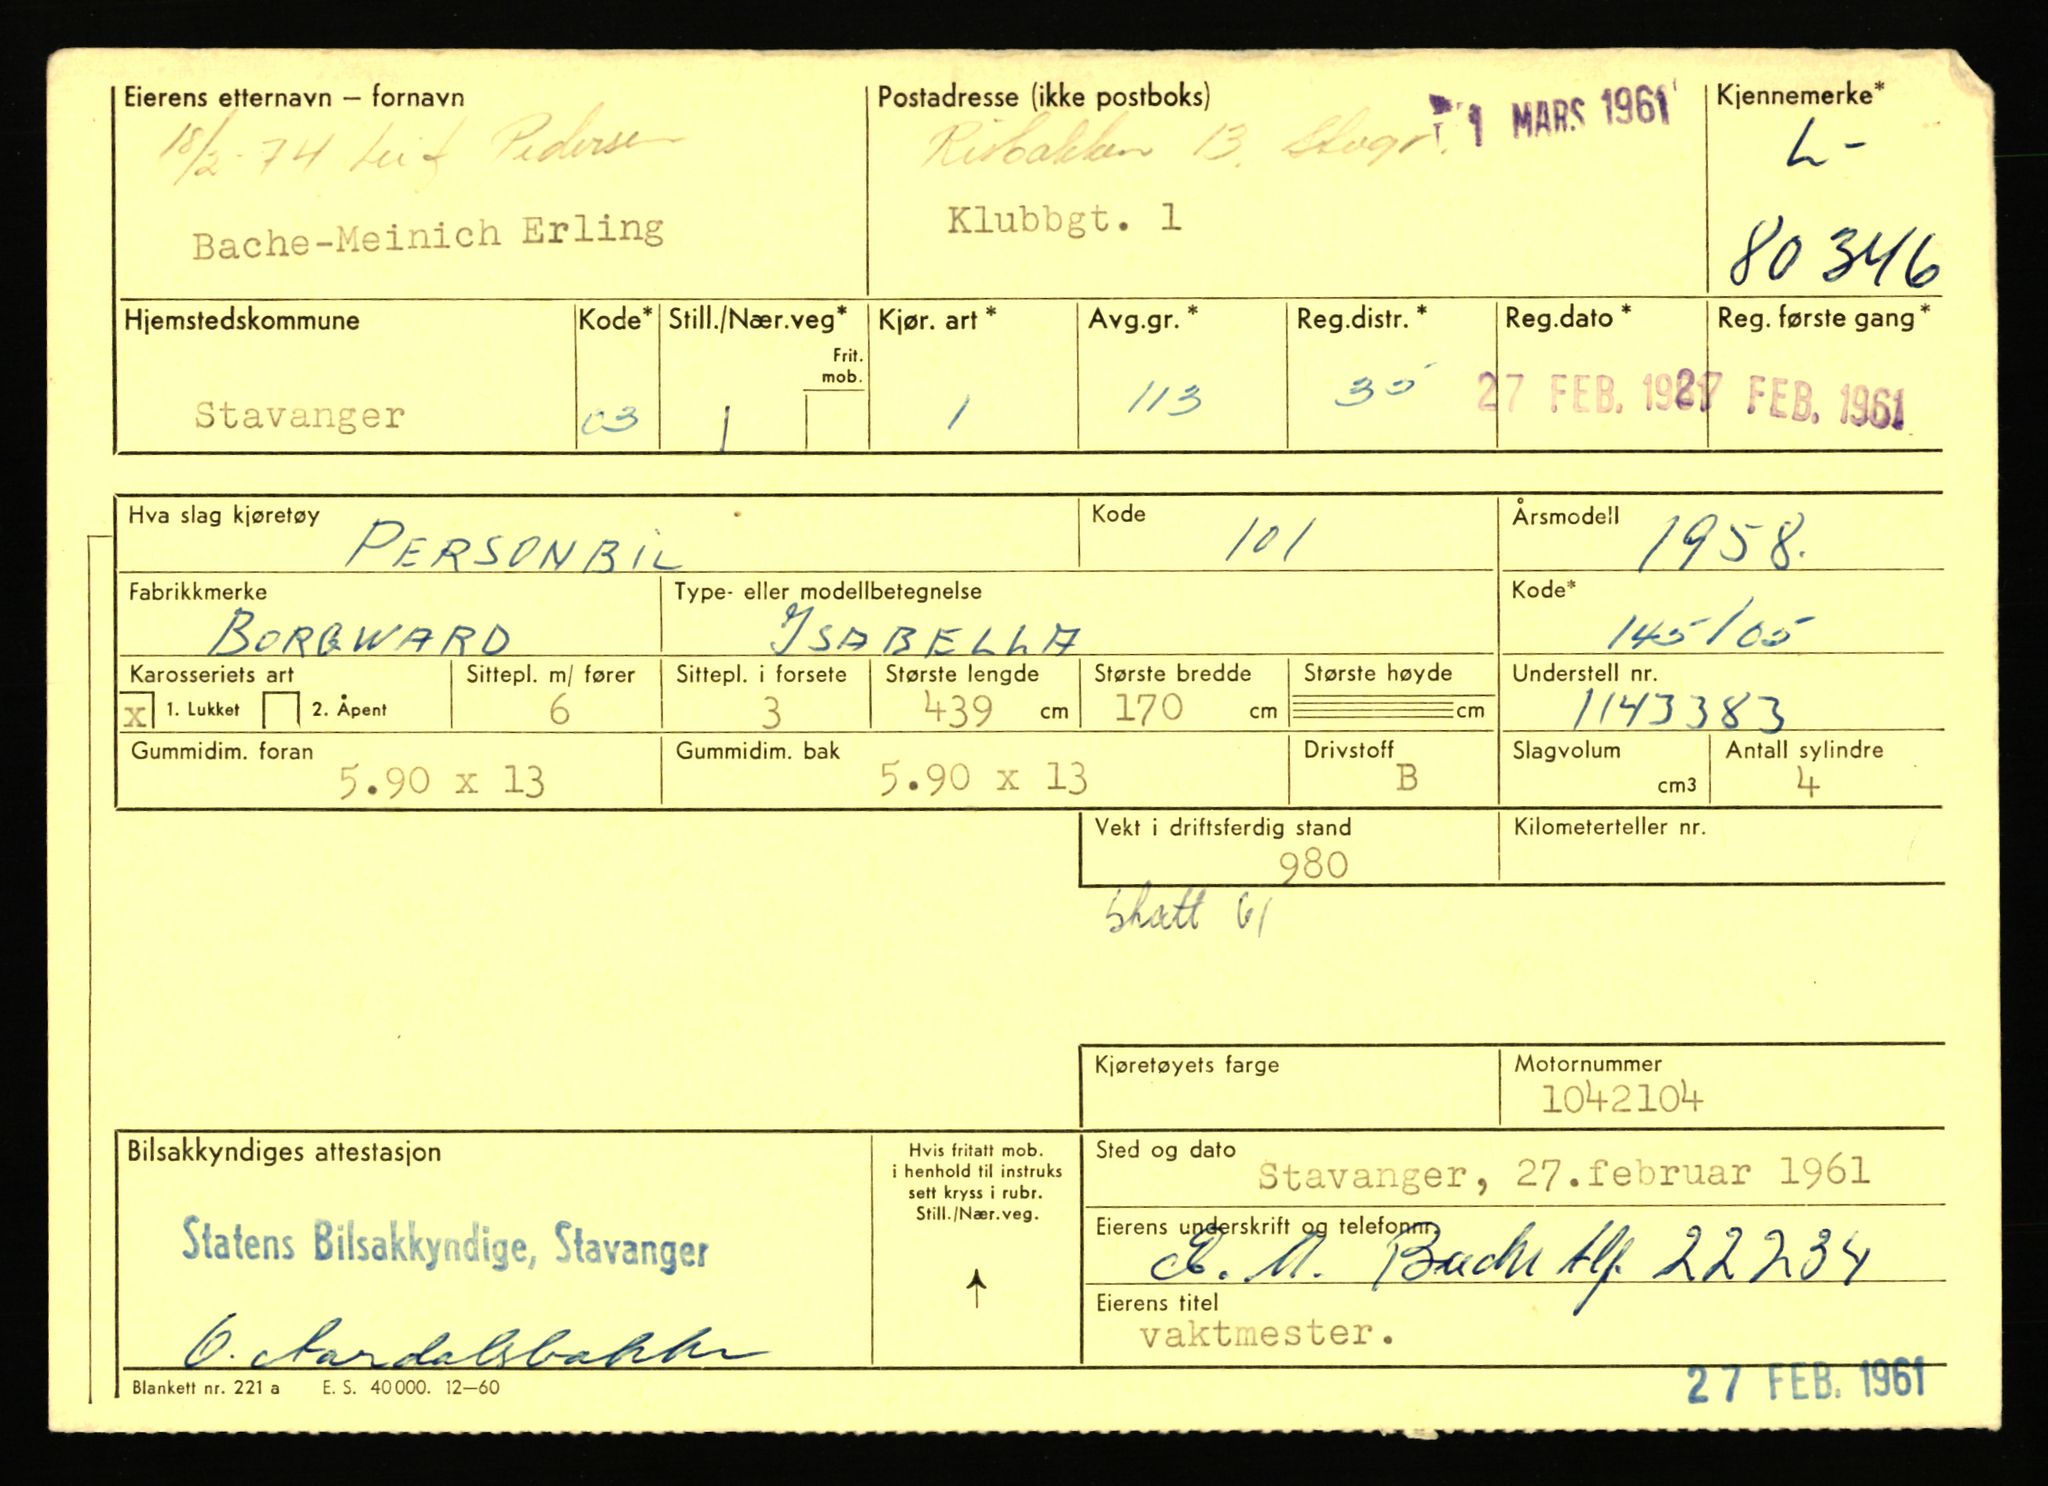 Eierens etternavn – fornavn Postadresse (ikke postboks) 1 MARS 1961 Kjennemerke*
18/2-74 Leif Pedersen 13. Stvgr. L-
Bache-Meinich Erling Klubbgt. 1 80346
Hjemstedskommune Kode* Still./Nær.veg* Kjør. art * Avg.gr. * Reg.distr. * Reg.dato * Reg. første gang *
Frit. mob.
Stavanger 03 1 1 113 35 27 FEB. 1961 27 FEB. 1961
Hva slag kjøretøy Kode Årsmodell
PERSONBIL 101 1958.
Fabrikkmerke Type- eller modellbetegnelse Kode*
BORGWARD ISABELLA 145/05
Karosseriets art Sittepl. m/ fører Sittepl. i forsete Største lengde Største bredde Største høyde Understell nr.
x 1. Lukket 2. Åpent 6 3 439 cm 170 cm cm 1143383
Gummidim. foran Gummidim. bak Drivstoff Slagvolum Antall sylindre
5.90 x 13 5.90 x 13 B cm3 4
Vekt i driftsferdig stand Kilometerteller nr.
980
skatt 61
Kjøretøyets farge Motornummer
1042104
Bilsakkyndiges attestasjon Hvis fritatt mob. Sted og dato
i henhold til instruks Stavanger, 27.februar 1961
sett kryss i rubr.
Still./Nær.veg. Eierens underskrift og telefonnr.
Statens Bilsakkyndige, Stavanger E. M. Bache tlf. 22234
↑ Eierens titel
O. Aardalsbakke vaktmester.
Blankett nr. 221 a E. S. 40000. 12–60 27 FEB. 1961